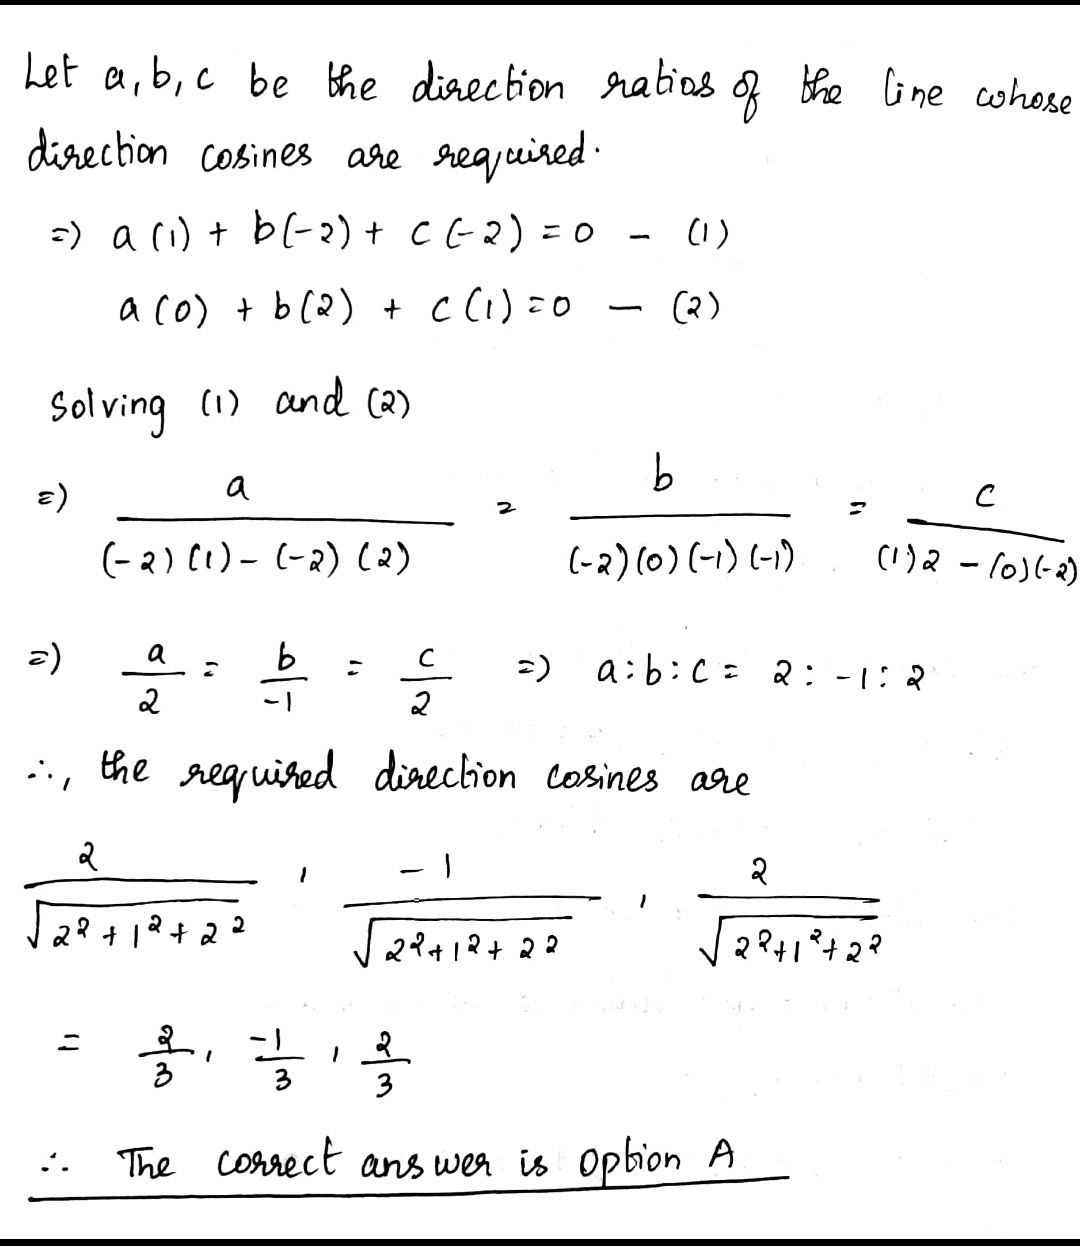 Let a, b, c be the direction ratios of the line whose
direction cosines are required.
=) a (1) + b(-2) + c (-2) = 0 - (1)
a (0) + b(2) + c (1) = 0 - (2)
Solving (1) and (2)
=) a / (-2) (1) - (-2) (2) = b / (-2) (0) (-1) (-1) = c / (1) 2 - (0) (-2)
=) a/2 = b/-1 = c/2 =) a : b : c = 2 : -1 : 2
∴, the required direction cosines are
2/√2²+1²+2² , -1/√2²+1²+2² , 2/√2²+1²+2²
= 2/3 , -1/3 , 2/3
∴ The correct answer is option A